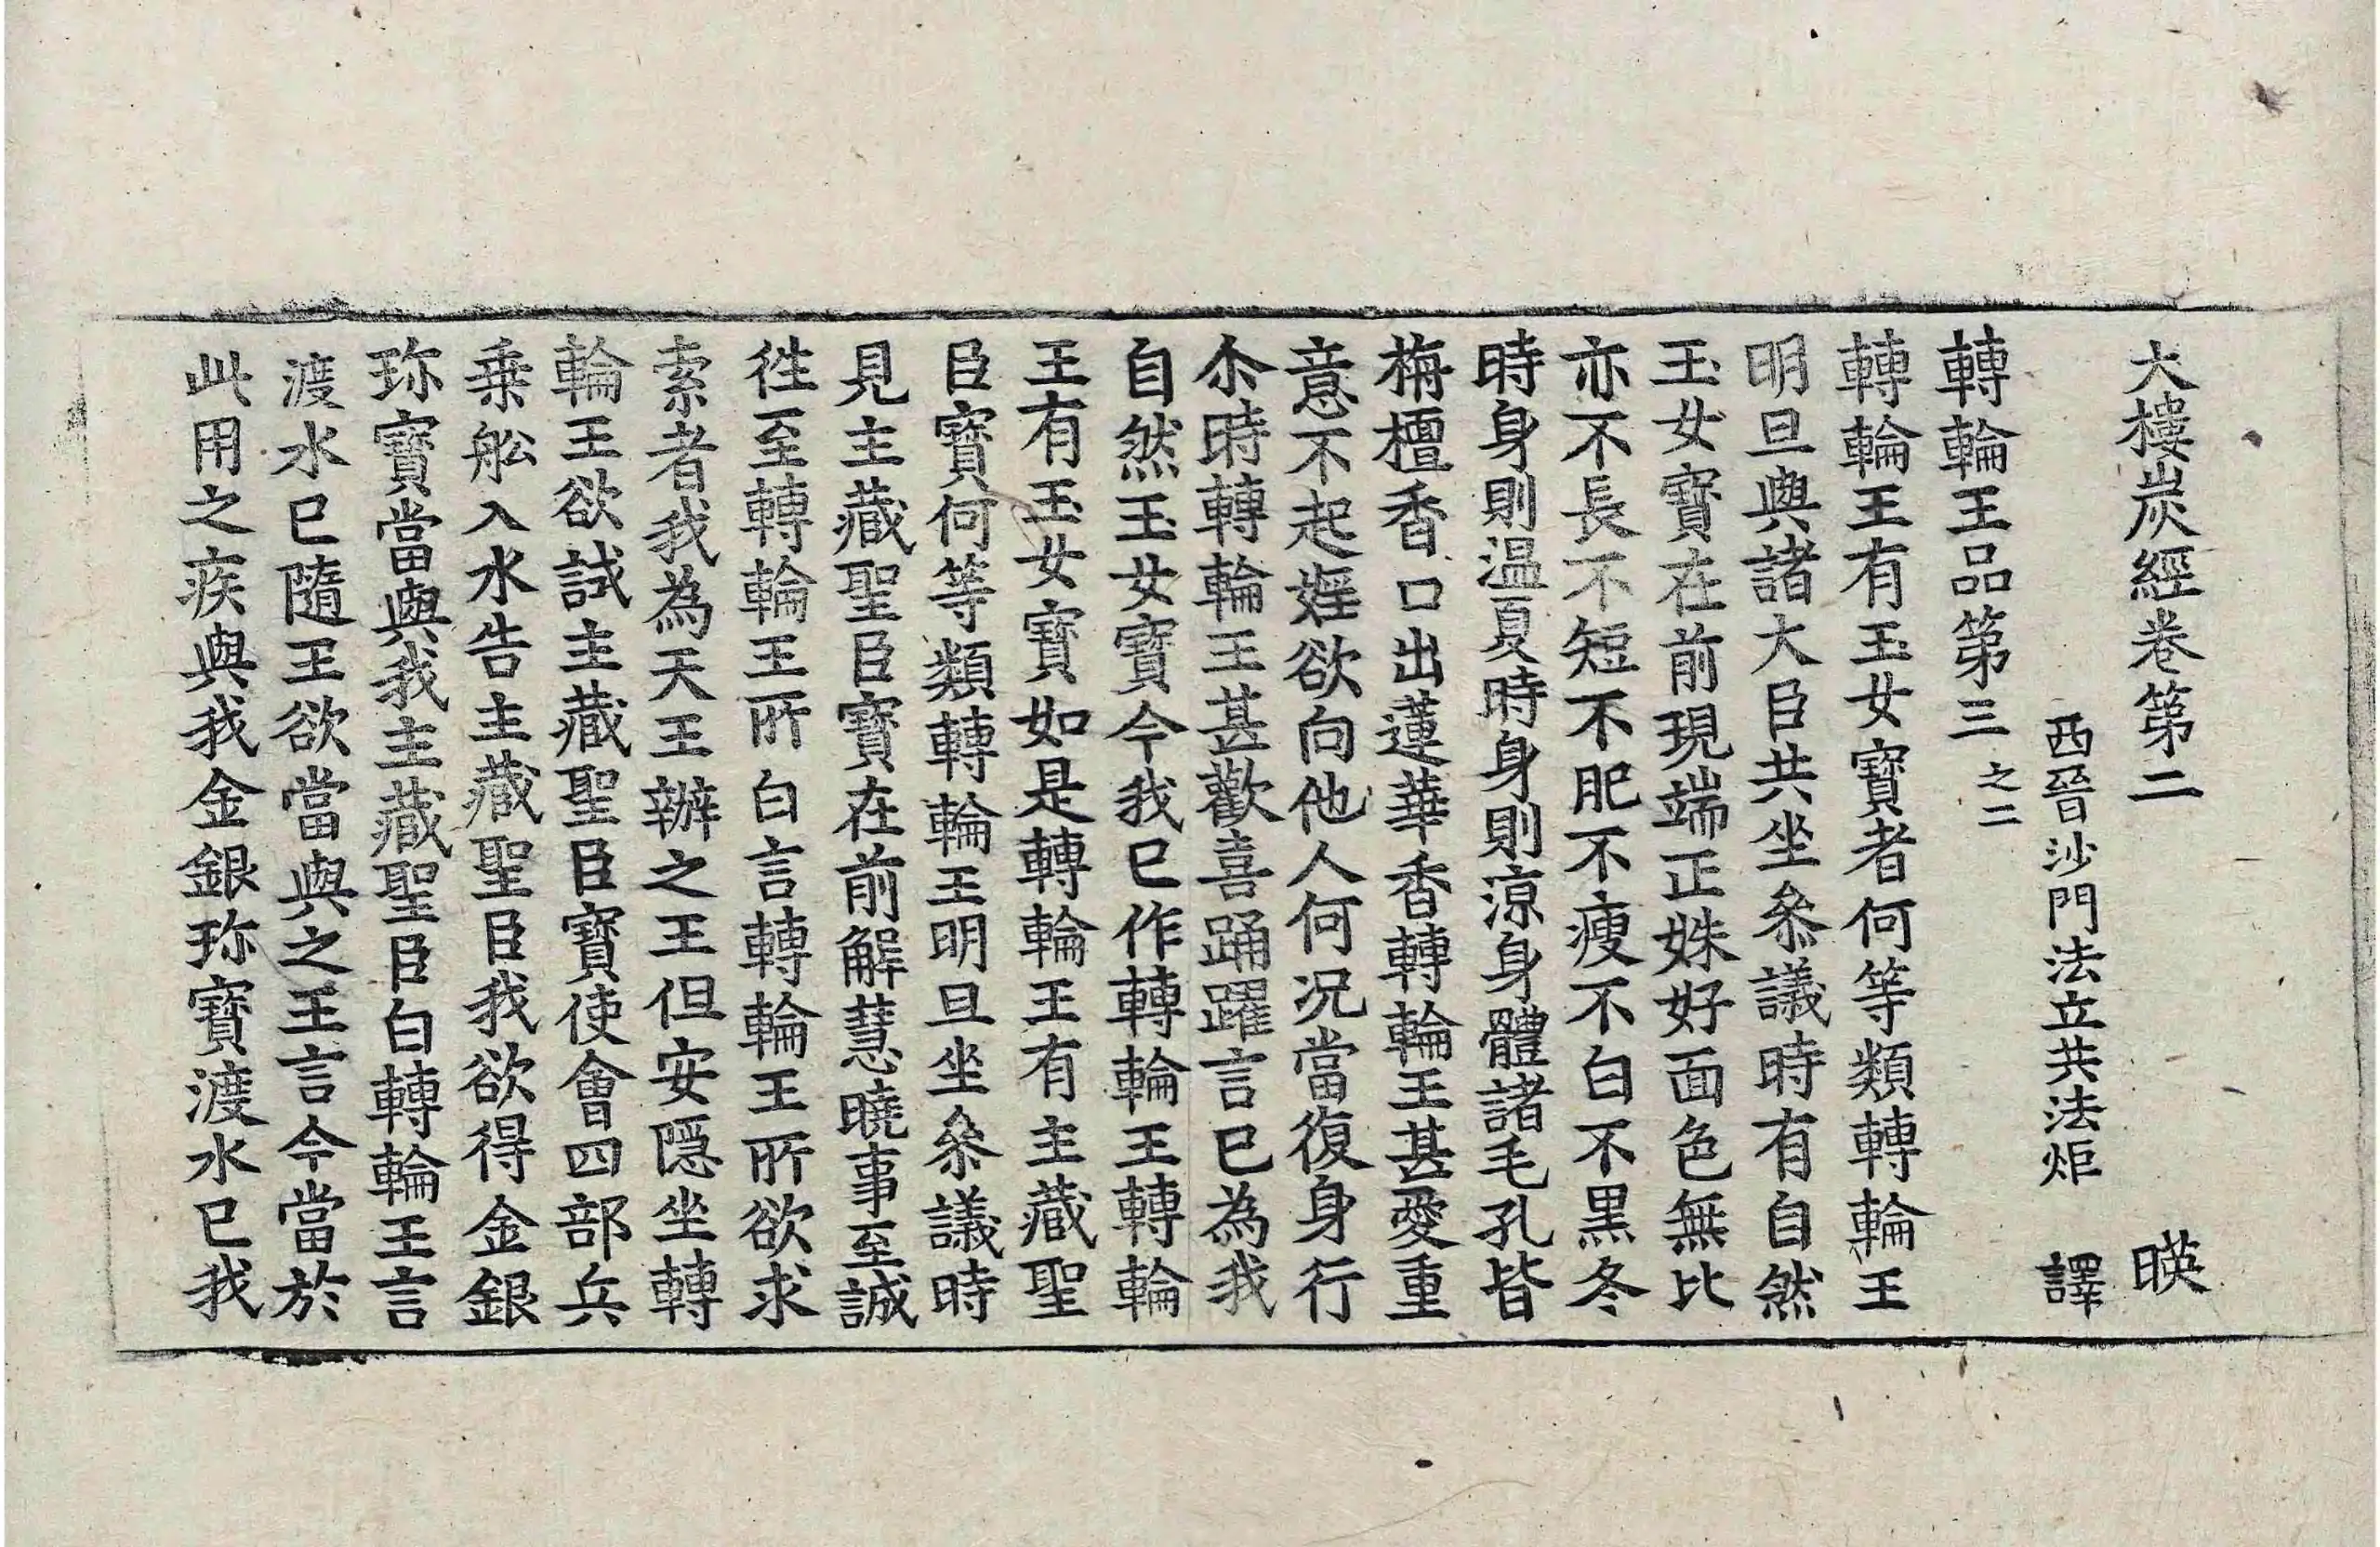 大樓炭經卷第二 暎
西晉沙門法立共法炬 譯
轉輪王品第三之二
轉輪王有玉女寶者何等類轉輪王
明旦與諸大臣共坐叅議時有自然
玉女寶在前現端正姝好面色無比
亦不長不短不肥不瘦不白不黒冬
時身則温夏時身則涼身體諸毛孔皆
栴檀香口出蓮華香轉輪王甚愛重
意不起婬欲向他人何况當復身行
尒時轉輪王甚歡喜踊躍言已為我
自然玉女寶今我已作轉輪王轉輪
王有玉女寶如是轉輪王有主藏聖
臣寶何等類轉輪王明旦坐叅議時
見主藏聖臣寶在前解慧曉事至誠
徃至轉輪王所白言轉輪王所欲求
索者我為天王辦之王但安隱坐轉
輪王欲試主藏聖臣寶使會四部兵
乗舩入水告主藏聖臣我欲得金銀
珎寶當與我主藏聖臣白轉輪王言
渡水已隨王欲當與之王言今當於
此用之疾與我金銀珎寶渡水已我